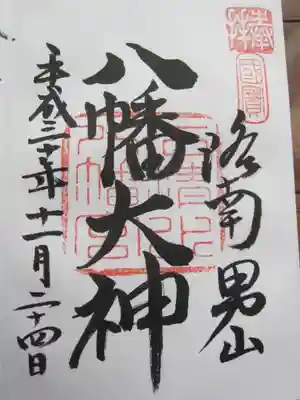 奉拝
國寶
洛南 男山
八幡大神
石清水八幡宮
平成三十年十一月二十四日